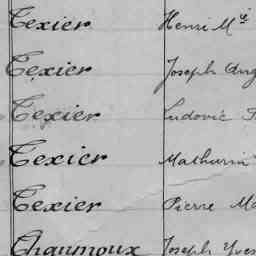 Texier Henri Mie
Texier Joseph Aug
Texier Ludovic
Texier Mathurin
Texier Pierre Ma
Chaumoux Joseph Yves